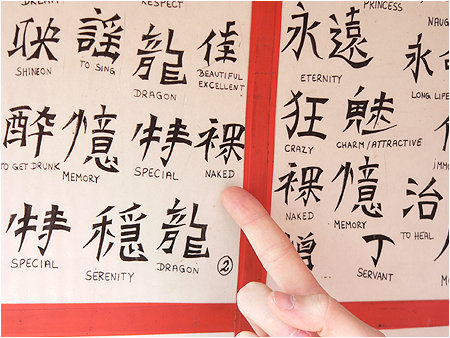 DREAM RESPECT
映 謡 龍 佳
SHINEON TO SING DRAGON BEAUTIFUL
EXCELLENT
酔 憶 特 裸
TO GET DRUNK MEMORY SPECIAL NAKED
特 穏 龍
SPECIAL SERENITY DRAGON ②
PRINCESS
永遠 永
ETERNITY LONG LIFE
狂 魅
CRAZY CHARM/ATTRACTIVE
裸 憶 治
NAKED MEMORY TO HEAL
丁
SERVANT